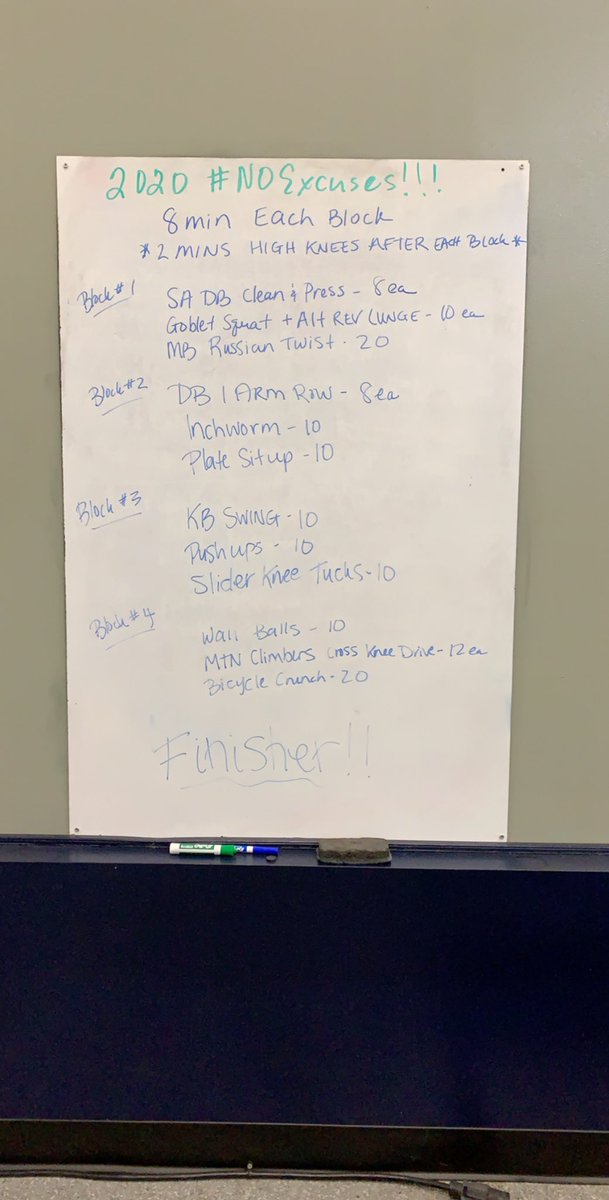 2020 #NO Excuses!!!
8 min Each Block
* 2 MINS HIGH KNEES AFTER EACH BLOCK *
Block #1
SA DB Clean & Press - 8 ea
Goblet Squat + Alt REV LUNGE - 10 ea
MB Russian Twist - 20
Block #2
DB 1 ARM ROW - 8 ea
Inchworm - 10
Plate Situp - 10
Block #3
KB SWING - 10
Pushups - 10
Slider Knee Tucks - 10
Block #4
Wall Balls - 10
MTN Climbers Cross Knee Drive - 12 ea
Bicycle Crunch - 20
Finisher!!